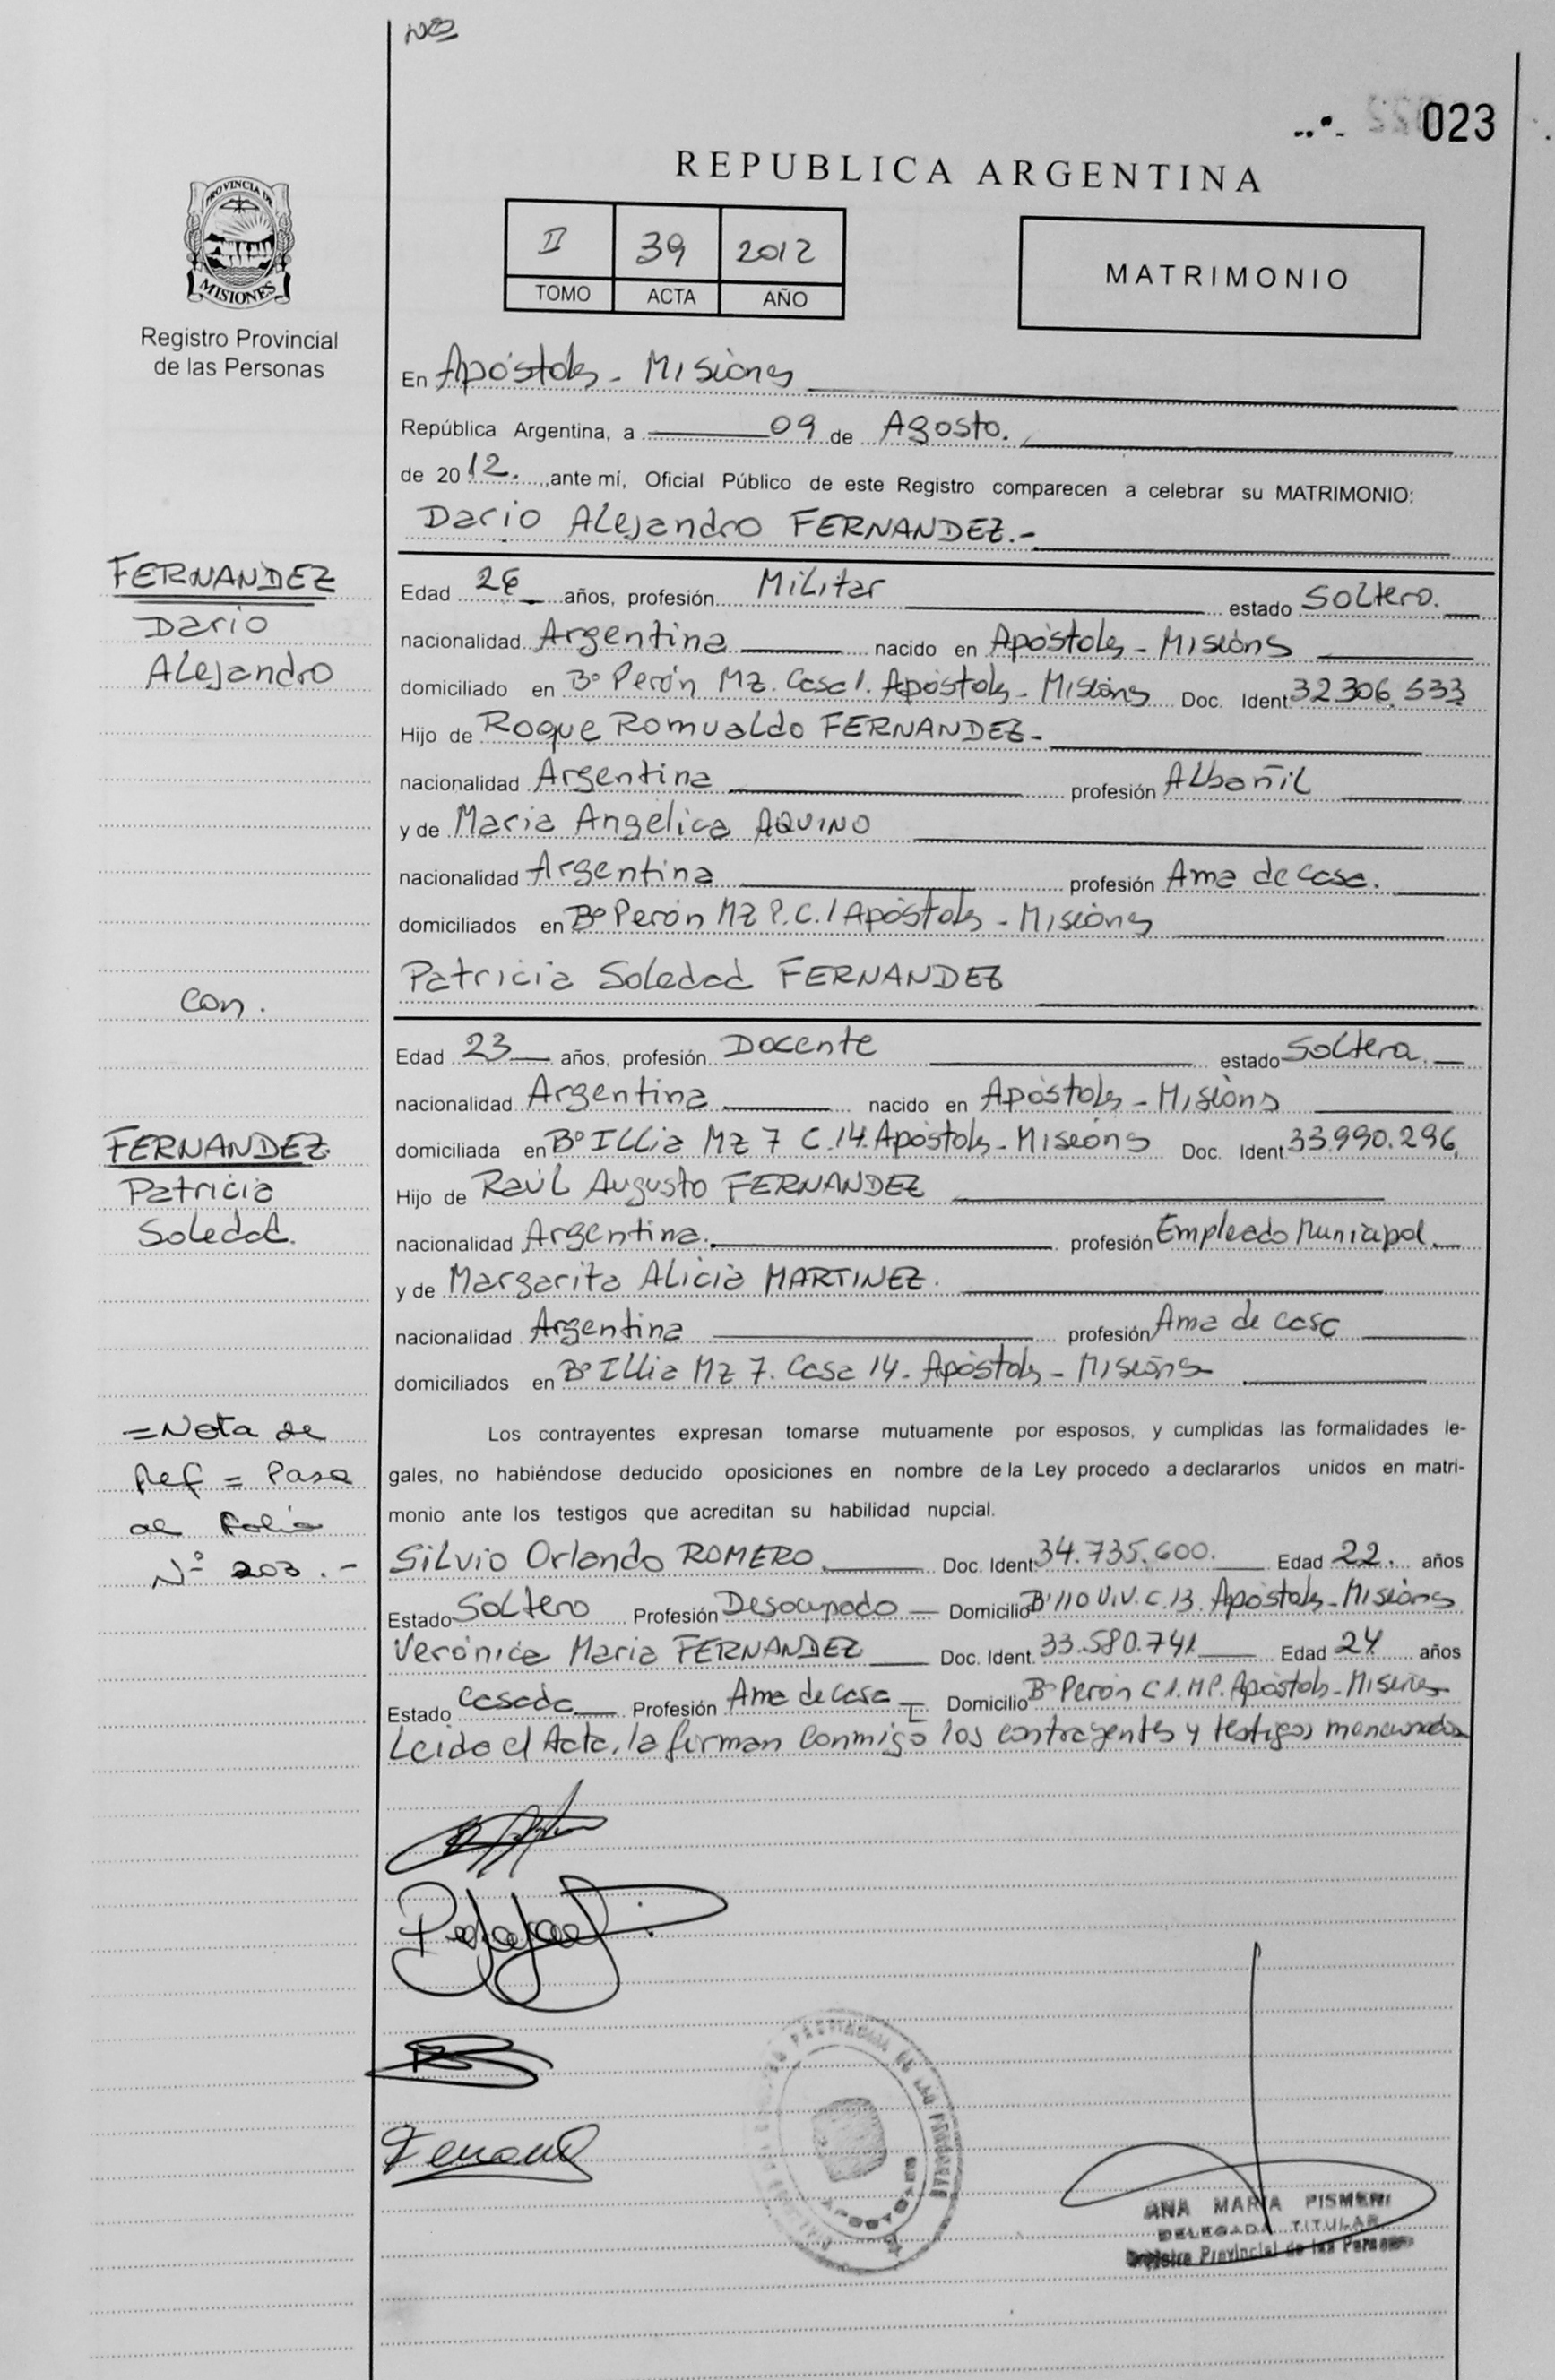 023
REPUBLICA ARGENTINA
II 39 2012
TOMO ACTA AÑO
MATRIMONIO
PROVINCIA DE
MISIONES
Registro Provincial
de las Personas
En Apóstoles - Misiones
República Argentina, a 09 de Agosto.
de 2012. ,ante mí, Oficial Público de este Registro comparecen a celebrar su MATRIMONIO:
Dario Alejandro FERNANDEZ.-
FERNANDEZ
Dario
Alejandro
Edad 26 años, profesión Militar estado Soltero.
nacionalidad Argentina nacido en Apóstoles - Misiones
domiciliado en Bº Perón MZ. Casa 1. Apóstoles - Misiones Doc. Ident 32.306.533
Hijo de Roque Romualdo FERNANDEZ-
nacionalidad Argentina profesión Albañil
y de Maria Angélica AQUINO
nacionalidad Argentina profesión Ama de casa.
domiciliados en Bº Perón MZ P. C. 1 Apóstoles - Misiones
Patricia Soledad FERNANDEZ
con.
Edad 23 años, profesión Docente estado Soltera.
nacionalidad Argentina nacido en Apóstoles - Misiones
FERNANDEZ
Patricia
Soledad.
domiciliada en Bº Illia MZ 7 C. 14. Apóstoles - Misiones Doc. Ident 33.990.296
Hijo de Raúl Augusto FERNANDEZ
nacionalidad Argentina. profesión Empleado Municipal.
y de Margarita Alicia MARTINEZ.
nacionalidad Argentina profesión Ama de casa
domiciliados en Bº Illia MZ 7. Casa 14. Apóstoles - Misiones
=Nota de
Ref = Pasa
al Folio
Nº 203.-
Los contrayentes expresan tomarse mutuamente por esposos, y cumplidas las formalidades le-
gales, no habiéndose deducido oposiciones en nombre de la Ley procedo a declararlos unidos en matri-
monio ante los testigos que acreditan su habilidad nupcial.
Silvio Orlando ROMERO. Doc. Ident 34.735.600. Edad 22. años
Estado Soltero Profesión Desocupado Domicilio Bº 110 Viv. C. 13. Apóstoles - Misiones
Verónica Maria FERNANDEZ Doc. Ident. 33.580.741 Edad 24 años
Estado Casada Profesión Ama de Casa Domicilio Bº Perón C 1. MP. Apóstoles - Misiones
Leido el Acta, la firman conmigo los contrayentes y testigos mencionados
ANA MARIA PISMENI
DELEGADA TITULAR
Registro Provincial de las Personas